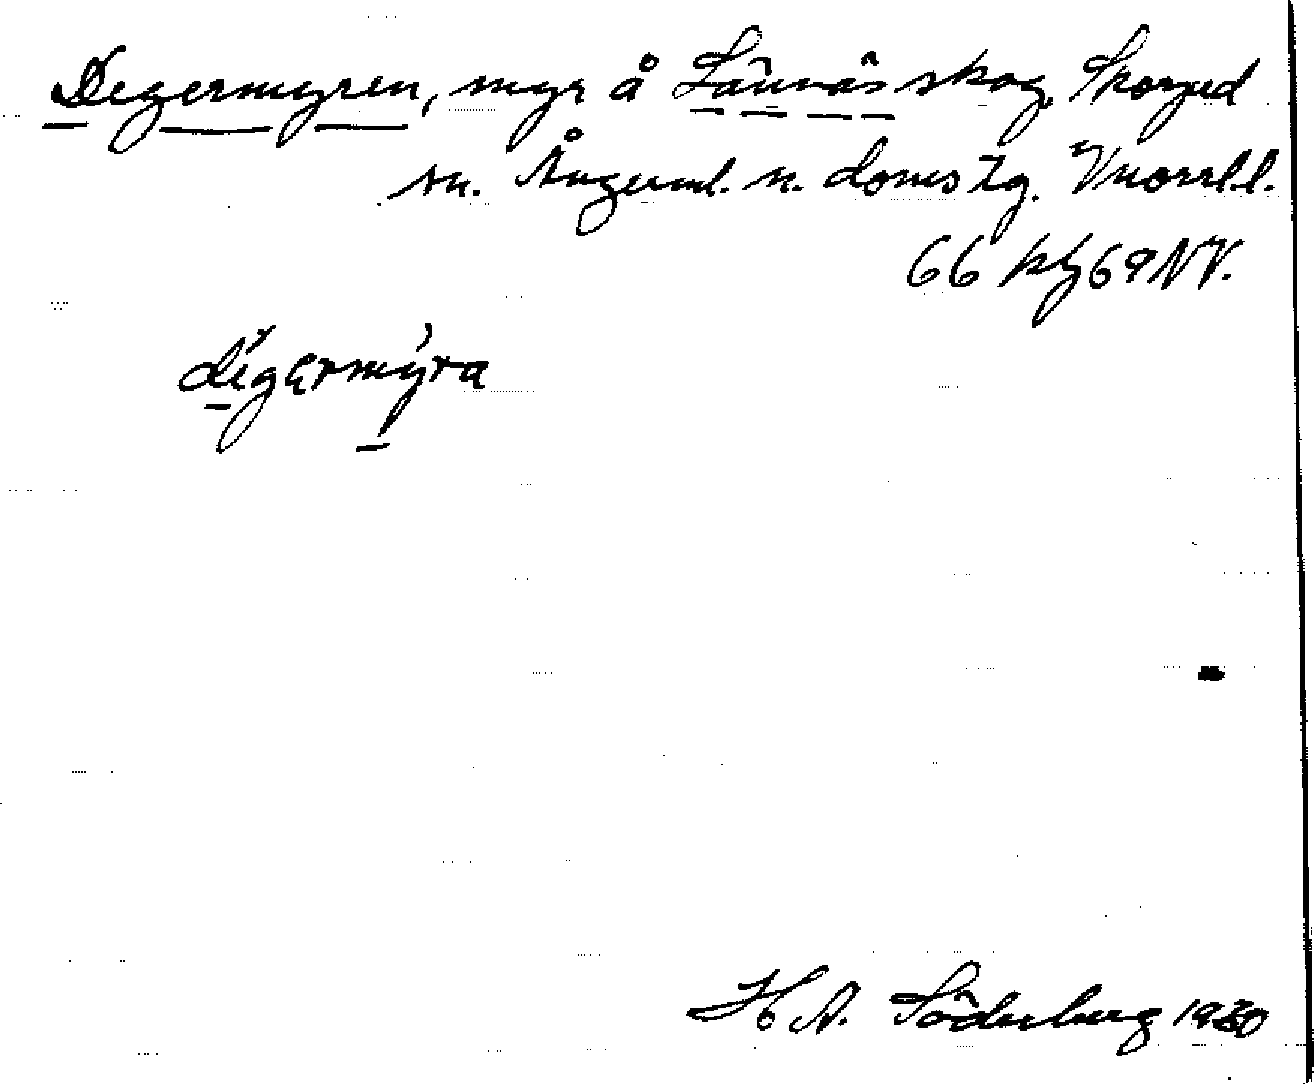 Degermyren, myr å Lännäs skog, Skorped
sn. Ångerml. n. domstg. Vnorrl. l.
66 kbl 69 NV.
dégermýra
H A. Söderberg 1930